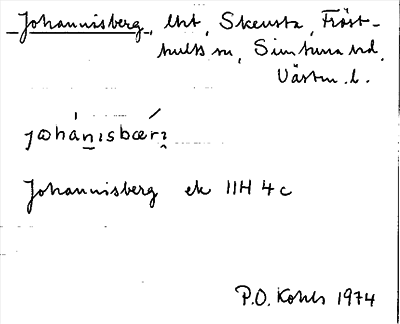 Johannisberg, lht, Skensta, Fröst-
hults sn, Simtuna hd,
Västm. l.
johánisbær̀i
Johannisberg ek 11H 4c
P.O. Kohls 1974